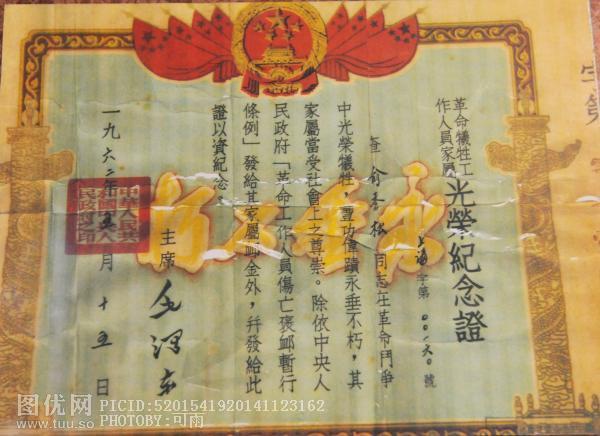 革命犧牲工
作人員家屬
光榮紀念證
上海字第 號
查 俞秀松 同志在革命鬥爭
中光榮犧牲,豐功偉蹟永垂不朽,其
家屬當受社會上之尊崇。除依中央人
民政府「革命工作人員傷亡褒卹暫行
條例」發給其家屬卹金外,幷發給此
證以資紀念。
主席 毛澤东
一九六二年五月十五日
中華人民共
和國中央人
民政府之印
永垂不朽
图优网
www.tuu.so
PICID:5201541920141123162
PHOTOBY:可雨